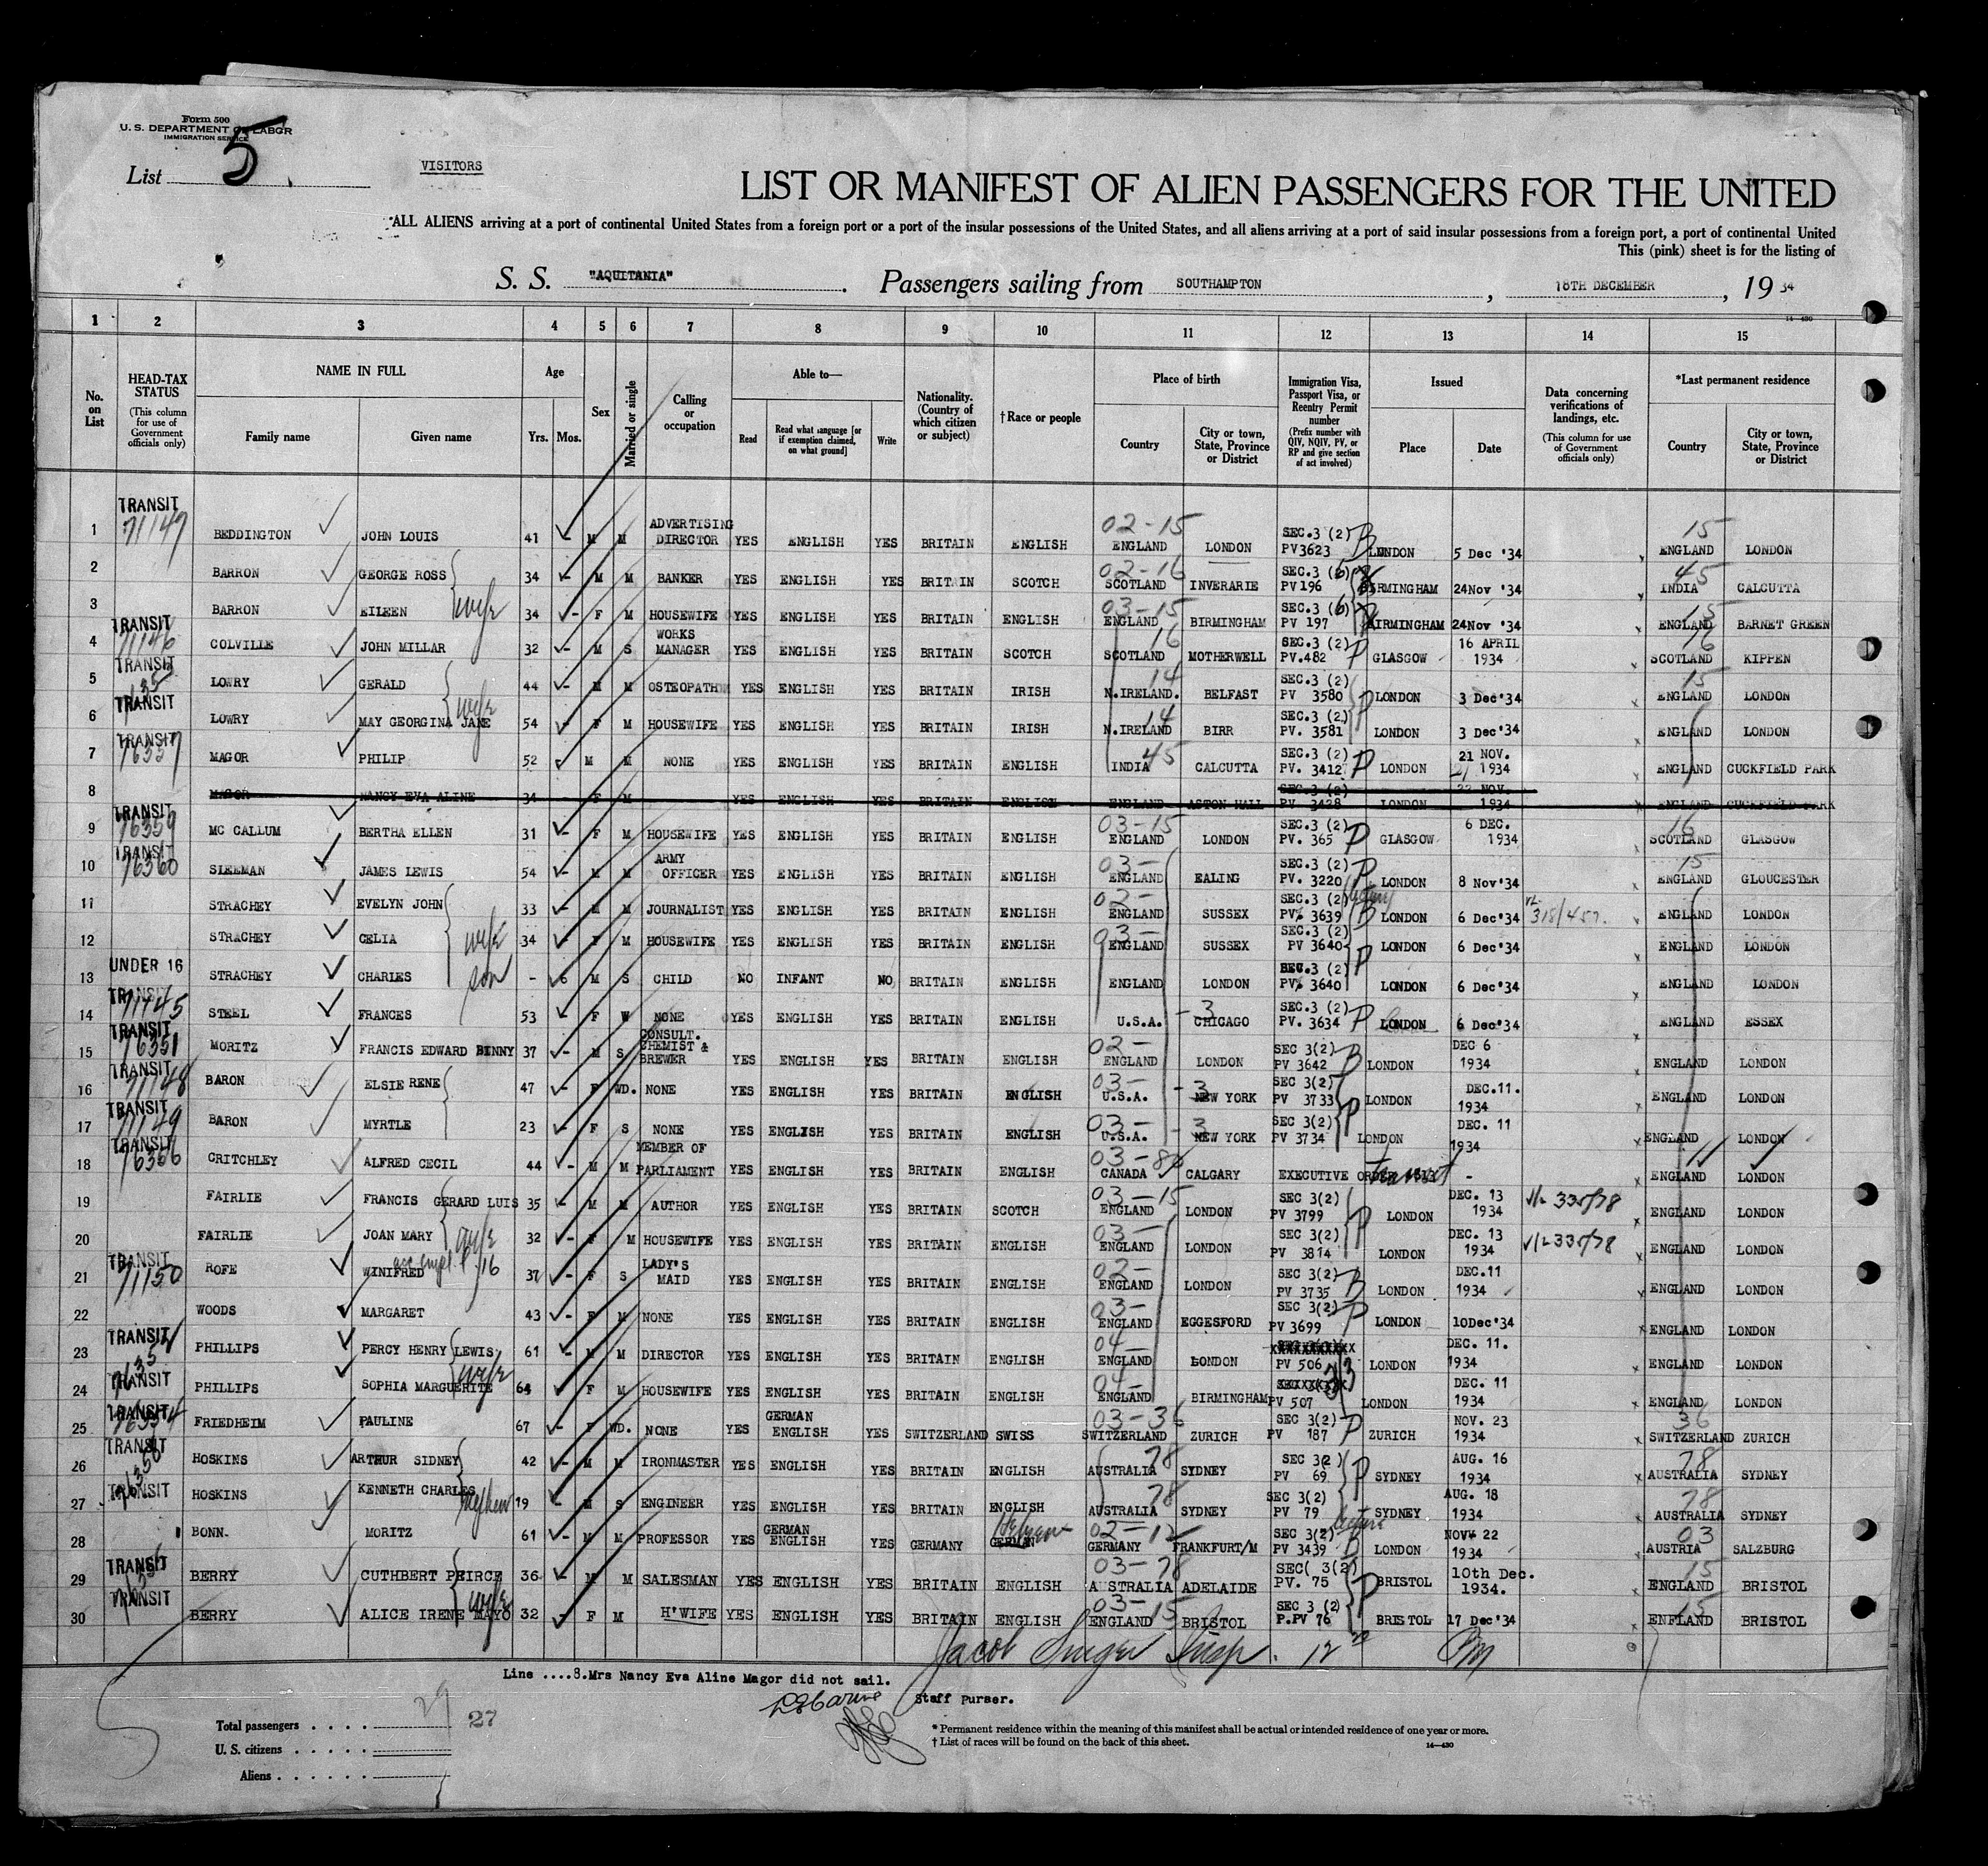 Form 500
U. S. DEPARTMENT OF LABOR
IMMIGRATION SERVICE
List 5
VISITORS
LIST OR MANIFEST OF ALIEN PASSENGERS FOR THE UNITED
ALL ALIENS arriving at a port of continental United States from a foreign port or a port of the insular possessions of the United States, and all aliens arriving at a port of said insular possessions from a foreign port, a port of continental United
This (pink) sheet is for the listing of
S. S. "AQUITANIA" . Passengers sailing from SOUTHAMPTON , 18TH DECEMBER , 19 34
14-430
1 2 3 4 5 6 7 8 9 10 11 12 13 14 15
No. on List
HEAD-TAX STATUS (This column for use of Government officials only)
NAME IN FULL
Family name Given name
Age
Yrs. Mos.
Sex
Married or single
Calling or occupation
Able to—
Read Read what language [or if exemption claimed, on what ground] Write
Nationality. (Country of which citizen or subject)
†Race or people
Place of birth
Country City or town, State, Province or District
Immigration Visa, Passport Visa, or Reentry Permit number (Prefix number with QIV, NQIV, PV, or RP and give section of act involved)
Issued
Place Date
Data concerning verifications of landings, etc. (This column for use of Government officials only)
*Last permanent residence
Country City or town, State, Province or District
1 TRANSIT 71147 BEDDINGTON JOHN LOUIS 41 - M M ADVERTISING DIRECTOR YES ENGLISH YES BRITAIN ENGLISH 02-15 ENGLAND LONDON SEC.3 (2) PV3623 LONDON 5 Dec '34 15 ENGLAND LONDON
2 BARRON GEORGE ROSS 34 - M M BANKER YES ENGLISH YES BRITAIN SCOTCH 02-16 SCOTLAND INVERARIE SEC.3 (6) PV196 BIRMINGHAM 24Nov '34 45 INDIA CALCUTTA
3 BARRON EILEEN wife 34 - F M HOUSEWIFE YES ENGLISH YES BRITAIN ENGLISH 03-15 ENGLAND BIRMINGHAM SEC.3 (6) PV 197 BIRMINGHAM 24Nov '34 15 ENGLAND BARNET GREEN
4 TRANSIT 71146 COLVILLE JOHN MILLAR 32 - M S WORKS MANAGER YES ENGLISH YES BRITAIN SCOTCH 16 SCOTLAND MOTHERWELL SEC.3 (2) PV.482 P GLASGOW 16 APRIL 1934 16 SCOTLAND KIPPEN
5 TRANSIT LOWRY GERALD 44 - M M OSTEOPATH YES ENGLISH YES BRITAIN IRISH 14 N.IRELAND. BELFAST SEC.3 (2) PV 3580 LONDON 3 Dec '34 15 ENGLAND LONDON
6 TRANSIT LOWRY MAY GEORGINA JANE wife 54 - F M HOUSEWIFE YES ENGLISH YES BRITAIN IRISH 14 N.IRELAND BIRR SEC.3 (2) PV. 3581 P LONDON 3 Dec '34 ENGLAND LONDON
7 TRANSIT 76357 MAGOR PHILIP 52 M M NONE YES ENGLISH YES BRITAIN ENGLISH 45 INDIA CALCUTTA SEC.3 (2) PV. 3412 P LONDON 21 NOV. 1934 ENGLAND CUCKFIELD PARK
8 MAGOR NANCY EVA ALINE 34 F M YES ENGLISH YES BRITAIN ENGLISH ENGLAND ASTON HALL SEC.3 (2) PV 3428 LONDON 22 NOV. 1934 ENGLAND CUCKFIELD PARK
9 TRANSIT 76359 MC CALLUM BERTHA ELLEN 31 - F M HOUSEWIFE YES ENGLISH YES BRITAIN ENGLISH 03-15 ENGLAND LONDON SEC.3 (2) PV. 365 P GLASGOW 6 DEC. 1934 16 SCOTLAND GLASGOW
10 TRANSIT 76360 SLEEMAN JAMES LEWIS 54 - M M ARMY OFFICER YES ENGLISH YES BRITAIN ENGLISH 03- ENGLAND EALING SEC.3 (2) PV. 3220 P LONDON 8 Nov '34 15 ENGLAND GLOUCESTER
11 STRACHEY EVELYN JOHN 33 - M M JOURNALIST YES ENGLISH YES BRITAIN ENGLISH 02- ENGLAND SUSSEX SEC.3 (2) PV. 3639 B LONDON 6 Dec '34 ENGLAND LONDON
12 STRACHEY CELIA wife 34 - F M HOUSEWIFE YES ENGLISH YES BRITAIN ENGLISH 03- ENGLAND SUSSEX SEC.3 (2) PV 3640 P LONDON 6 Dec '34 ENGLAND LONDON
13 UNDER 16 STRACHEY CHARLES son - 6 M S CHILD NO INFANT NO BRITAIN ENGLISH ENGLAND LONDON SEC.3 (2) PV. 3640 LONDON 6 Dec '34 ENGLAND LONDON
14 TRANSIT 71145 STEEL FRANCES 53 - F W NONE YES ENGLISH YES BRITAIN ENGLISH U.S.A. -3 CHICAGO SEC.3 (2) PV. 3634 P LONDON 6 Dec '34 ENGLAND ESSEX
15 TRANSIT 76351 MORITZ FRANCIS EDWARD BINNY 37 - M S CONSULT. CHEMIST & BREWER YES ENGLISH YES BRITAIN ENGLISH 02- ENGLAND LONDON SEC 3(2) PV 3642 B LONDON DEC 6 1934 ENGLAND LONDON
16 TRANSIT 71148 BARON ELSIE RENE 47 - F WD. NONE YES ENGLISH YES BRITAIN ENGLISH 03- U.S.A. -3 NEW YORK SEC 3(2) PV 3733 LONDON DEC.11. 1934 ENGLAND LONDON
17 TRANSIT 71149 BARON MYRTLE 23 - F S NONE YES ENGLISH YES BRITAIN ENGLISH 03- U.S.A. -3 NEW YORK SEC 3(2) PV 3734 P LONDON DEC. 11 1934 ENGLAND LONDON
18 TRANSIT 76356 CRITCHLEY ALFRED CECIL 44 - M M MEMBER OF PARLIAMENT YES ENGLISH YES BRITAIN ENGLISH 03-80 CANADA CALGARY EXECUTIVE ORDER Transit - ENGLAND LONDON
19 FAIRLIE FRANCIS GERARD LUIS 35 - M M AUTHOR YES ENGLISH YES BRITAIN SCOTCH 03-15 ENGLAND LONDON SEC 3(2) PV 3799 LONDON DEC. 13 1934 V/L 335/78 ENGLAND LONDON
20 FAIRLIE JOAN MARY wife 32 - F M HOUSEWIFE YES ENGLISH YES BRITAIN ENGLISH 03- ENGLAND LONDON SEC 3(2) PV 3814 P LONDON DEC. 13 1934 V/L 335/78 ENGLAND LONDON
21 TRANSIT 71150 ROFE WINIFRED 37 - F S LADY'S MAID YES ENGLISH YES BRITAIN ENGLISH 02- ENGLAND LONDON SEC 3(2) PV 3735 B LONDON DEC.11 1934 ENGLAND LONDON
22 WOODS MARGARET 43 - F M NONE YES ENGLISH YES BRITAIN ENGLISH 03- ENGLAND EGGESFORD SEC 3(2) PV 3699 P LONDON 10Dec '34 ENGLAND LONDON
23 TRANSIT PHILLIPS PERCY HENRY LEWIS 61 - M M DIRECTOR YES ENGLISH YES BRITAIN ENGLISH 04- ENGLAND LONDON PV 506 LONDON DEC. 11. 1934 ENGLAND LONDON
24 TRANSIT PHILLIPS SOPHIA MARGUERITE wife 64 F M HOUSEWIFE YES ENGLISH YES BRITAIN ENGLISH 04- ENGLAND BIRMINGHAM PV 507 LONDON DEC. 11 1934 ENGLAND LONDON
25 TRANSIT 76354 FRIEDHEIM PAULINE 67 - F WD. NONE YES GERMAN ENGLISH YES SWITZERLAND SWISS 03-36 SWITZERLAND ZURICH SEC 3(2) PV 187 P ZURICH NOV. 23 1934 36 SWITZERLAND ZURICH
26 TRANSIT HOSKINS ARTHUR SIDNEY 42 - M M IRONMASTER YES ENGLISH YES BRITAIN ENGLISH 78 AUSTRALIA SYDNEY SEC 3(2) PV 69 P SYDNEY AUG. 16 1934 78 AUSTRALIA SYDNEY
27 TRANSIT HOSKINS KENNETH CHARLES nephew 19 - M S ENGINEER YES ENGLISH YES BRITAIN ENGLISH 78 AUSTRALIA SYDNEY SEC 3(2) PV 79 SYDNEY AUG. 18 1934 78 AUSTRALIA SYDNEY
28 BONN. MORITZ 61 - M M PROFESSOR YES GERMAN ENGLISH YES GERMANY GERMAN Hebrew 02-12 GERMANY FRANKFURT/M SEC 3(2) PV 3439 B Lecture LONDON NOV. 22 1934 03 AUSTRIA SALZBURG
29 TRANSIT BERRY CUTHBERT PEIRCE 36 - M M SALESMAN YES ENGLISH YES BRITAIN ENGLISH 03-78 AUSTRALIA ADELAIDE SEC( 3(2) PV. 75 P BRISTOL 10th Dec. 1934. 15 ENGLAND BRISTOL
30 TRANSIT BERRY ALICE IRENE MAYO wife 32 - F M H'WIFE YES ENGLISH YES BRITAIN ENGLISH 03-15 ENGLAND BRISTOL SEC 3 (2) P.PV 76 BRISTOL 17 Dec '34 15 ENFLAND BRISTOL
Jacob Insp. 12 PM
Line ....8.Mrs Nancy Eva Aline Magor did not sail.
Staff Purser.
Total passengers . . . . 29 27
U. S. citizens . . . . .
Aliens . . . . . .
* Permanent residence within the meaning of this manifest shall be actual or intended residence of one year or more.
† List of races will be found on the back of this sheet.
14—430